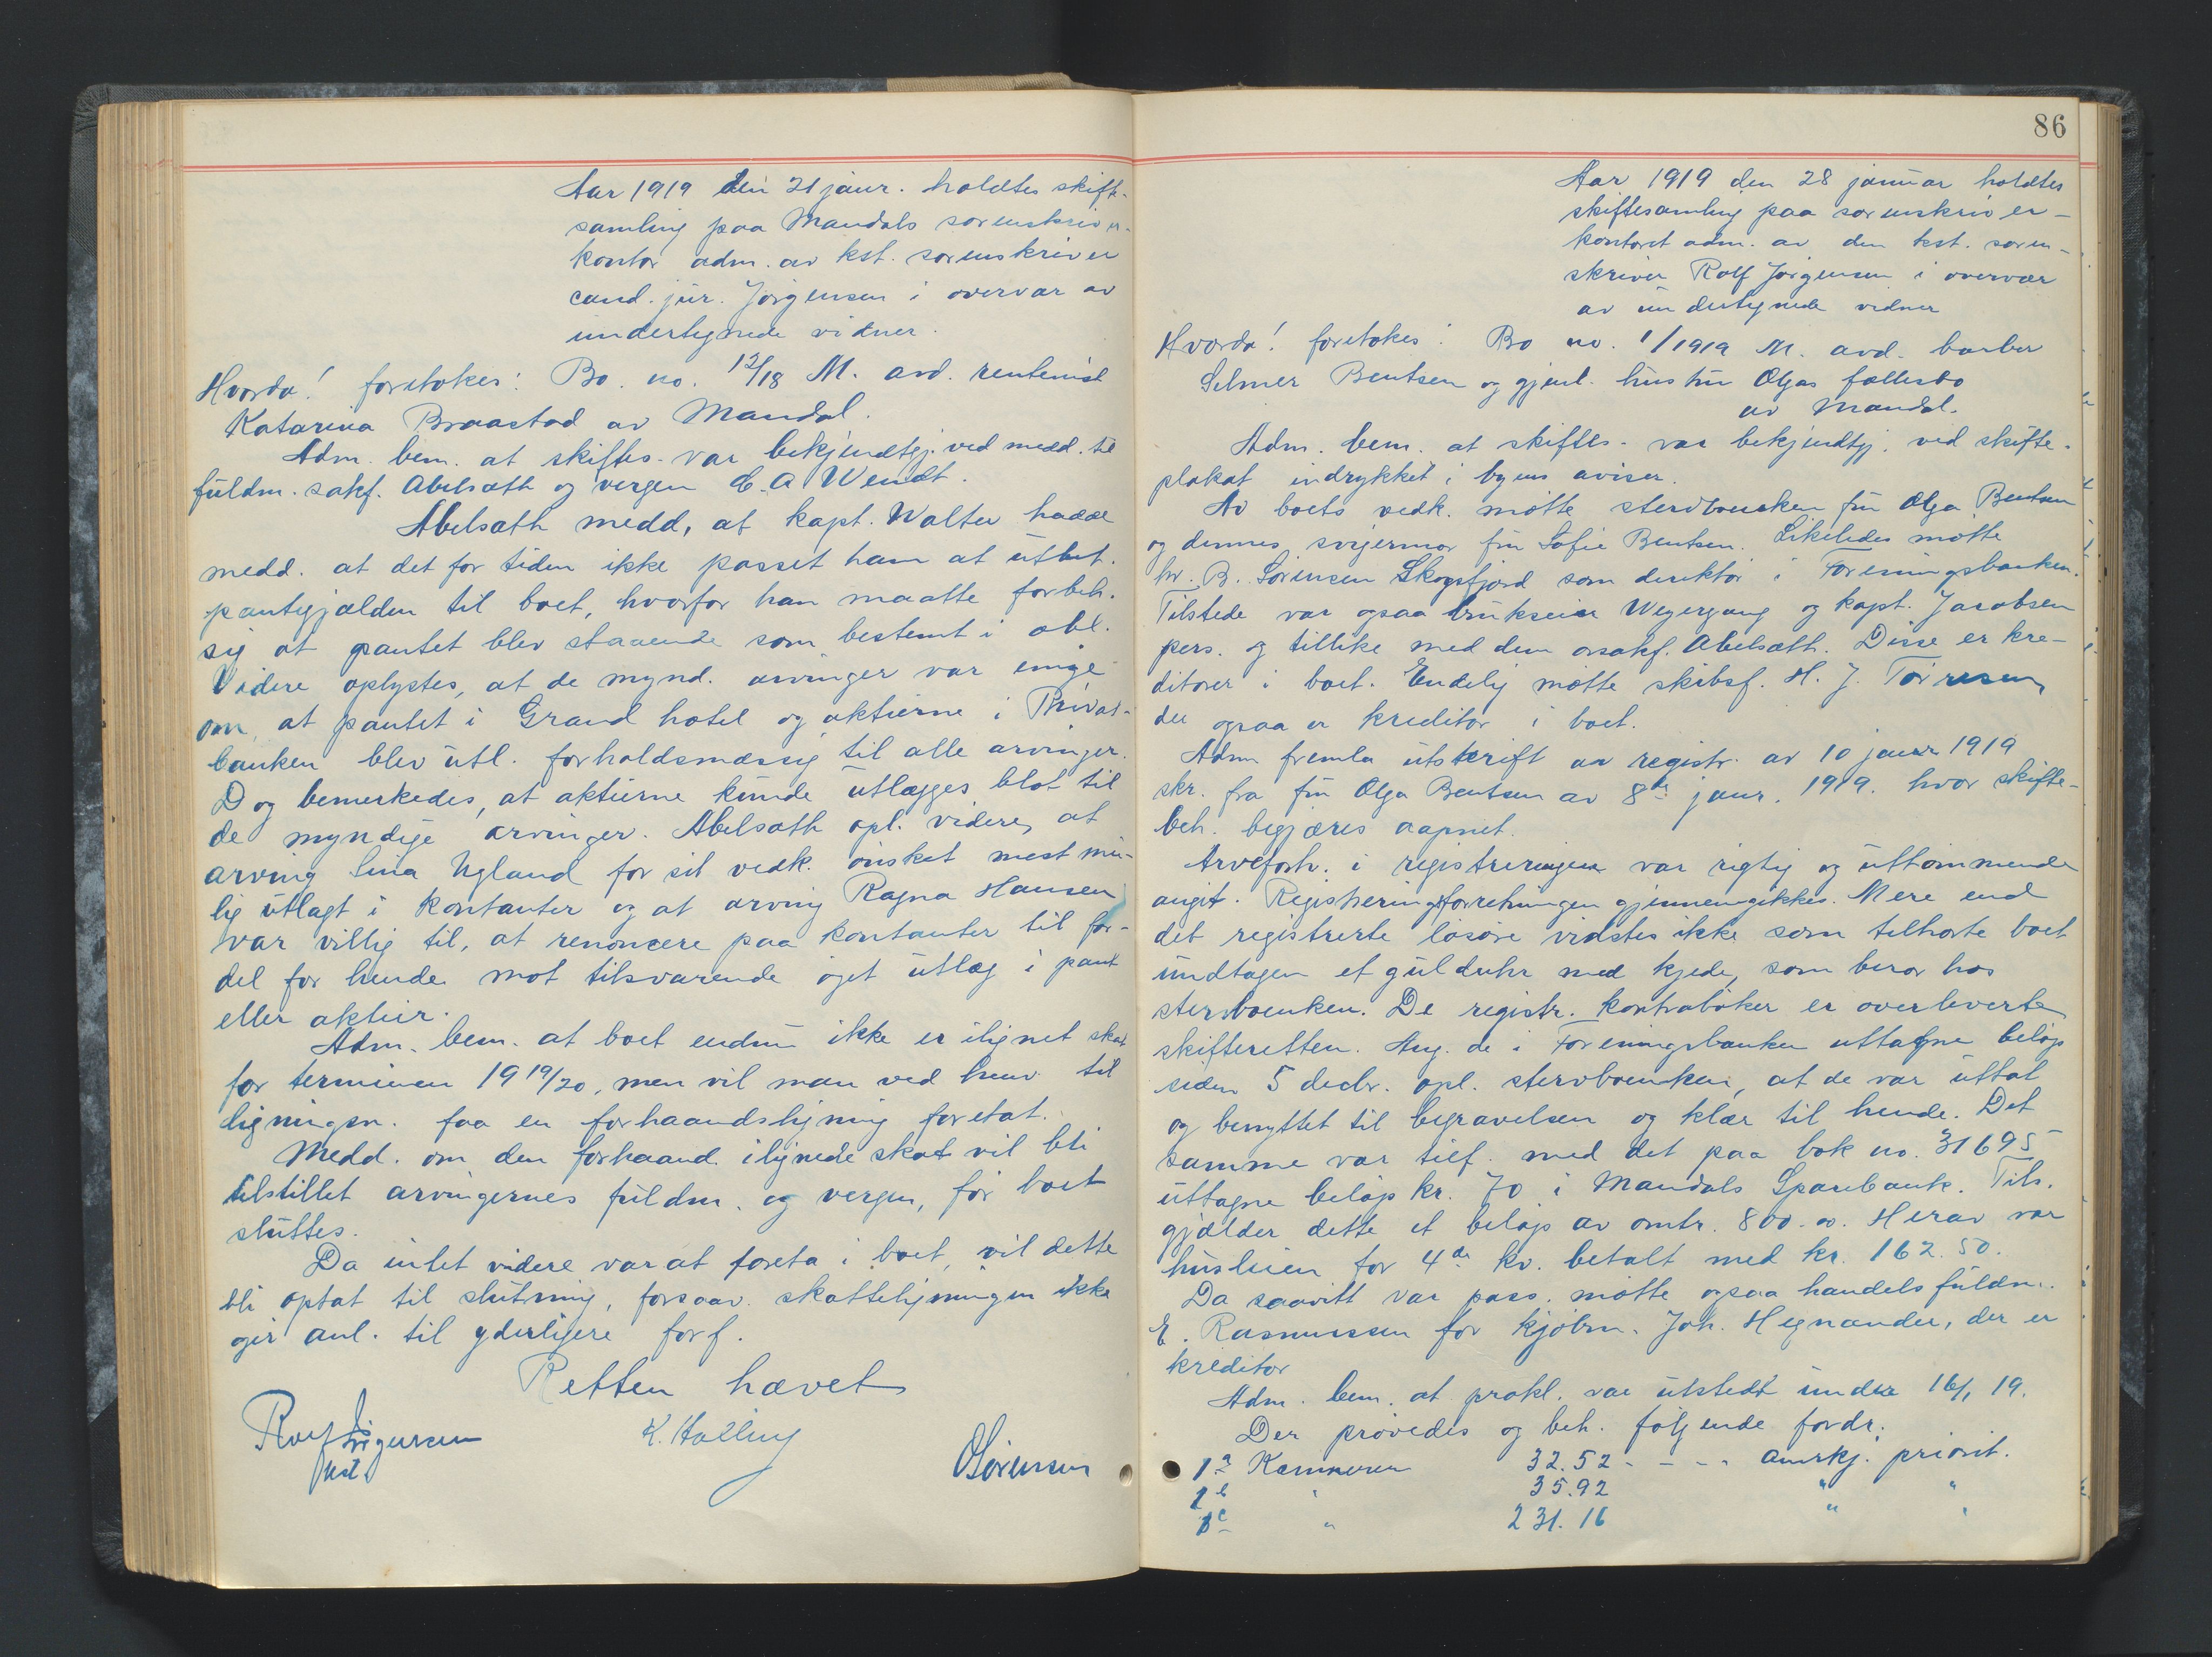 Aar 1919 den 21 janr. holdtes skifte-
samling paa Mandals sorenskriver-
kontor adm. av kst. sorenskriver
cand. jur. Jörgensen i overvær av
undertegnede vidner.
Hvorda! foretokes: Bo. no. 12/18 M. avd. rentenist
Katarina Braastad av Mandal.
Adm. bem. at skiftes. var bekjendtgj. ved medd. til
fuldm. sakf. Abelsæth og vergen C. A Wendt.
Abelsæth medd, at kapt. Walter hadde
medd. at det for tiden ikke passet ham at utbet.
pantegjælden til boet, hvorfor han maatte forbeh.
sig at pantet blev staaende som bestemt i obl.
Videre oplystes, at de mynd. arvinger var enige
om, at pantet i Grand hotel og aktierne i Privat-
banken blev utl. forholdsmæssig til alle arvinger.
Dog bemerkedes, at aktierne kunde utlægges blot til
de myndige arvinger. Abelsæth opl. videre, at
arving Lina Ugland for sit vedk. önsket mest mu-
lig utlagt i kontanter og at arving Ragna Hansen
var villig til, at renoncere paa kontanter til for-
del for hende mot tilsvarende öget utlæg i pant
eller aktier.
Adm. bem. at boet endnu ikke er ilignet skat
for terminen 1919/20, men vil man ved henv. til
ligningsn. faa en forhaandsligning foretat.
Medd. om den forhaand. ilignede skat vil bli
tilstillet arvingernes fuldm. og vergen, för boet
sluttes.
Da intet videre var at foreta i boet, vil dette
bli optat til slutning, forsaav. skatteligningen ikke
gir anl. til yderligere forf.
Retten hævet
Rolf Jörgensen
kst.
K. Halling
O Sörensen
86
Aar 1919 den 28 januar holdtes
skiftesamling paa sorenskriver-
kontoret adm. av den kst. soren-
skriver Rolf Jörgensen i overvær
av undertegnede vidner
Hvorda! foretokes: Bo no. 1/1919 M. avd. barber
Selmer Bentsen og gjenl. hustru Olgas fællesbo
av Mandal.
Adm. bem. at skiftes. var bekjendtgj. ved skifte-
plakat indrykket i byens aviser.
Av boets vedk. mötte stervboenken fru Olga Bentsen
og dennes svigermor fru Sofie Bentsen. Likeledes mötte
hr. B. Sörensen Skogsfjord som direktör i Foreningsbanken.
Tilstede var ogsaa brukseier Weyergang og kapt. Jacobsen
pers. og tillike med dem orsakf. Abelsæth. Disse er kre-
ditorer i boet. Endelig mötte skibsf. H. J. Törresen,
der ogsaa er kreditor i boet.
Adm fremla utskrift av registr. av 10 janr 1919
skr. fra fru Olga Bentsen av 8de janr. 1919. hvor skifte-
beh. begjæres aapnet.
Arveforh. i registreringen var rigtig og uttömmende
angit. Registreringsforretningen gjennemgikkes. Mere end
det registrerte lösöre vidstes ikke som tilhörte boet
undtagen et gulduhr med kjede, som beror hos
stervboenken. De registr. kontraböker er overleverte
skifteretten. Ang. de i Foreningsbanken uttagne belöp
siden 5 decbr. opl. stervboenken, at de var uttat
og benyttet til begravelsen og klær til hende. Det
samme var tilf. med det paa bok no. 31695
uttagne belöp kr. 70 i Mandals Sparebank. Tils.
gjælder dette et belöp av omtr. 800.00. Herav var
husleien for 4de kv. betalt med kr. 162.50.
Da saavitt var pass. mötte ogsaa handelsfuldm.
E. Rasmussen for kjöbm. Joh. Hegnander, der er
kreditor
Adm. bem. at prokl. var utstedt under 16/1 19.
Der prövedes og beh. fölgende fordr.:
1a Kemneren 32.52 - - - - anerkj. priorit.
1b " 35.92 " "
1c " 231.16 " "